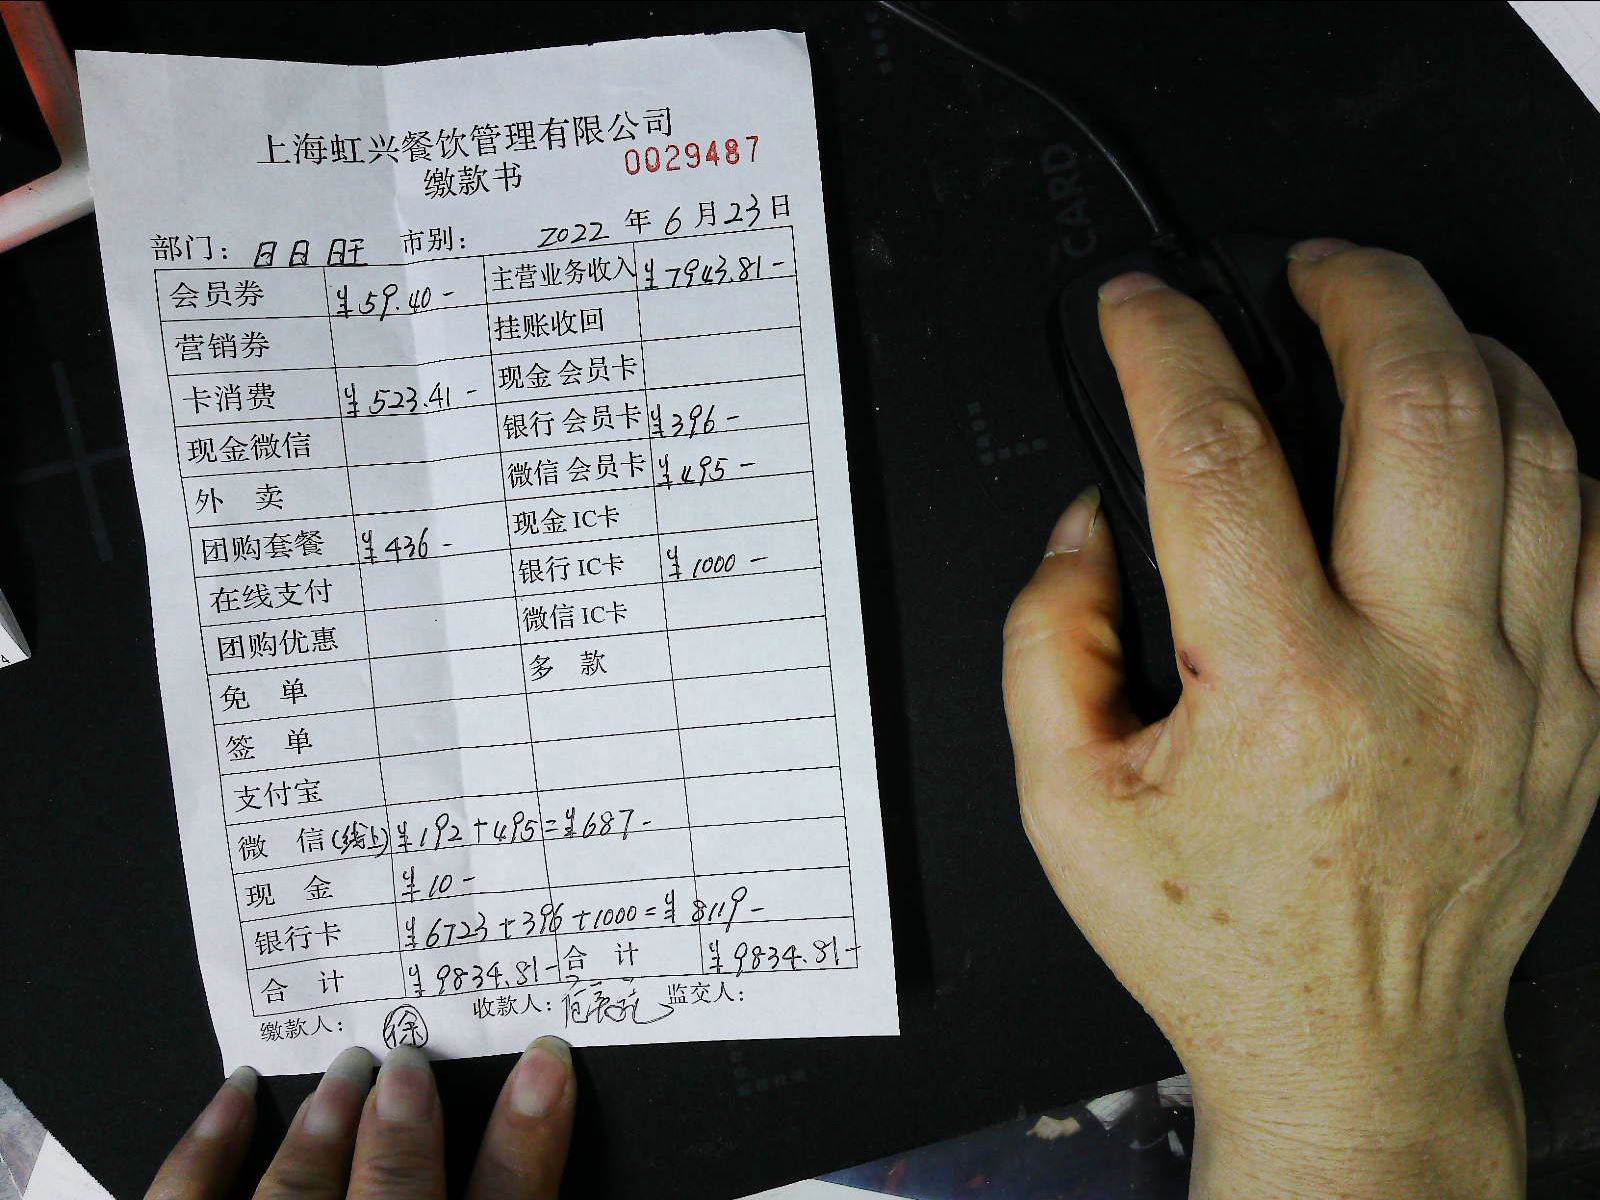 上海虹兴餐饮管理有限公司
缴款书 0029487
部门： 日日旺 市别： 2022 年 6 月 23 日
会员券 ¥59.40- 主营业务收入 ¥7943.81-
营销券 挂账收回
卡消费 ¥523.41- 现金 会员卡
现金微信 银行 会员卡 ¥396-
外 卖 微信 会员卡 ¥495-
团购套餐 ¥436- 现金 IC卡
在线支付 银行 IC卡 ¥1000-
团购优惠 微信 IC卡
免 单 多 款
签 单
支付宝
微 信(线上) ¥192+495=¥687-
现 金 ¥10-
银行卡 ¥6723+396+1000=¥8119-
合 计 ¥9834.81- 合 计 ¥9834.81-
缴款人： 徐 收款人： 监交人：
CARD